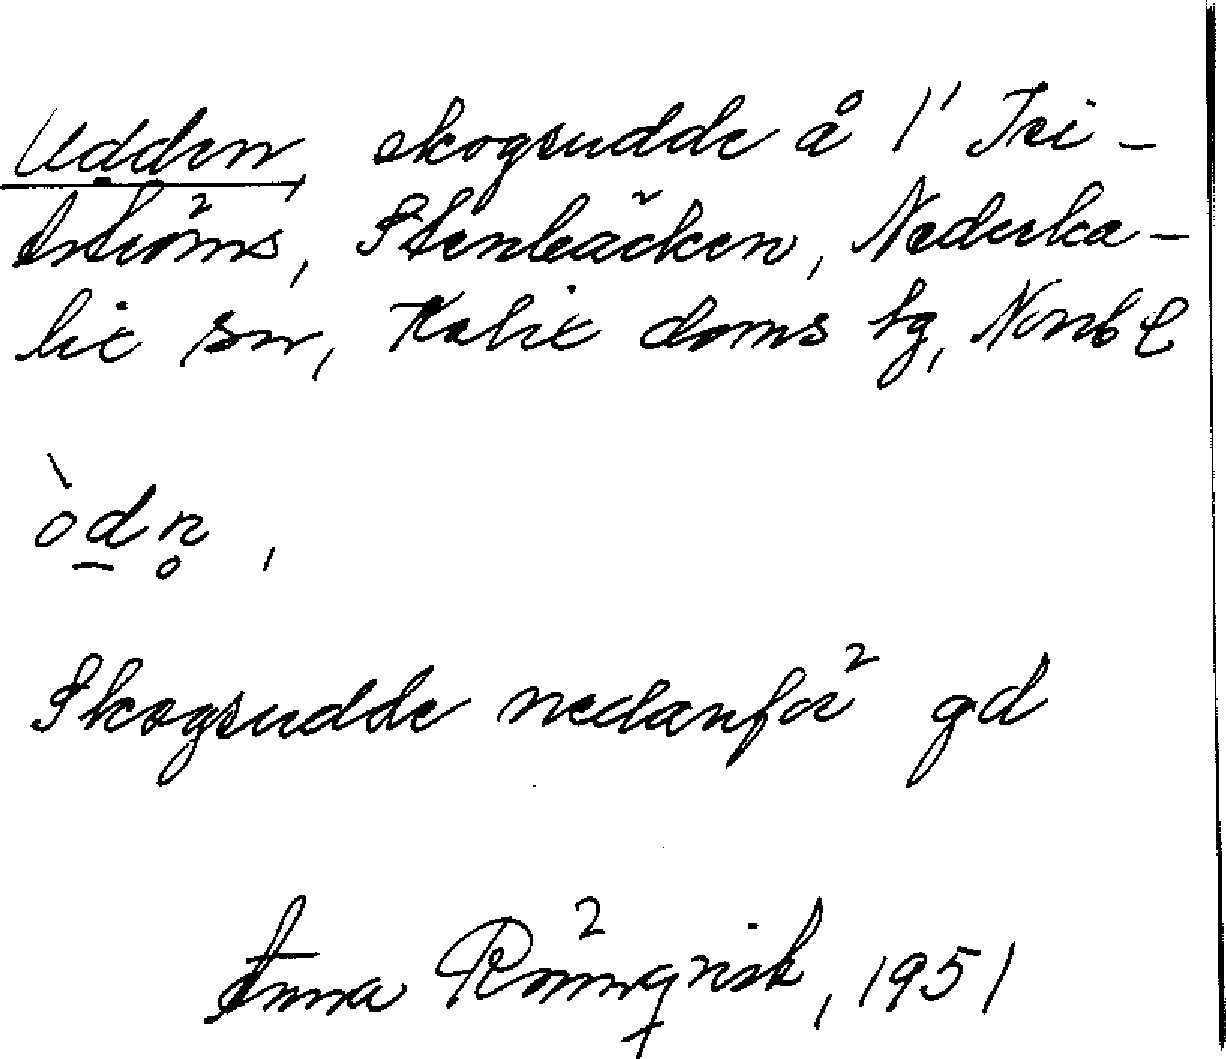 Udden, skogsudde å 1' Tri-
ströms, Stenbäcken, Nederka-
lix sn, Kalix doms tg, Norrb l
òdn̥ ,
Skogsudde nedanför gd
Anna Rönnqvist, 1951